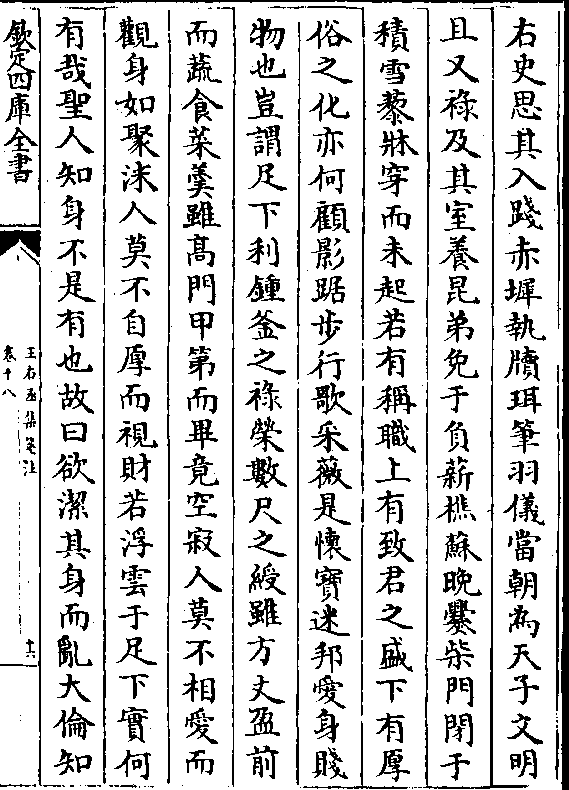 右史思其入踐赤墀執牘珥筆羽儀當朝為天子文明
且又祿及其室養昆弟免于負薪樵蘇晚爨柴門閉于
積雪藜牀穿而未起若有稱職上有致君之盛下有厚
俗之化亦何顧影踞步行歌采薇是懷寶迷邦愛身賤
物也豈謂足下利鍾釜之祿榮數尺之綬雖方丈盈前
而蔬食菜羹雖高門甲第而畢竟空寂人莫不相愛而
觀身如聚沫人莫不自厚而視財若浮雲于足下實何
有哉聖人知身不是有也故曰欲潔其身而亂大倫知
欽定四庫全書
王右丞集箋注
卷十八
十六